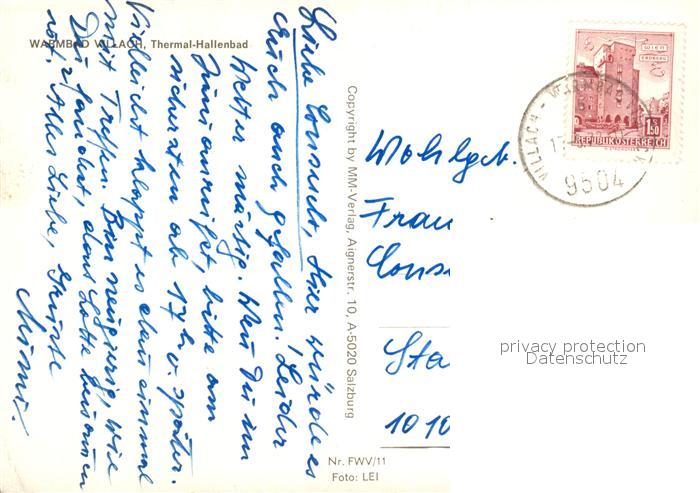 WARMBAD VILLACH, Thermal-Hallenbad
Liebe Consuelo, Hier würde es
Euch auch gefallen. Leider
Wetter mässig. Wenn Du im
Juni anrufst, bitte am
sichersten ab 17 h u. später.
Vielleicht klappt es dann einmal
mit Treffen. Bin neugierig, wie
Du fandest, dass Lotte
rot, Alles Liebe, Grüsse
Mimi!
Copyright by MM-Verlag, Aignerstr. 10, A-5020 Salzburg
Nr. FWV/11
Foto: LEI
WIEN
ERDBERG
1.50
REPUBLIK ÖSTERREICH
VILLACH - WARMBAD
9504
Wohlgeb.
Frau
Cons
Sta
1010
privacy protection
Datenschutz